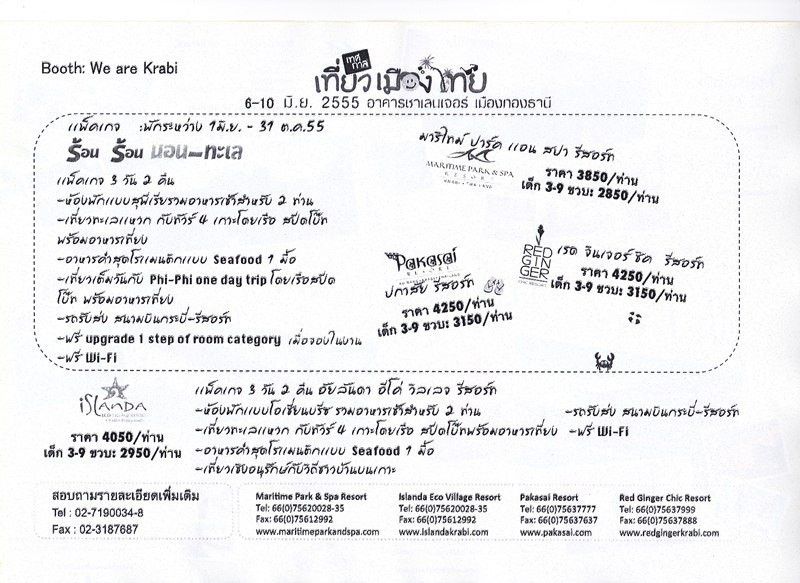 Booth: We are Krabi
เทศกาล
เที่ยวเมืองไทย
6-10 มิ.ย. 2555 อาคารชาเลนเจอร์ เมืองทองธานี
แพ็คเกจ :พักระหว่าง 1มิ.ย. - 31 ต.ค.55
ร้อน ร้อน นอน-ทะเล
แพ็คเกจ 3 วัน 2 คืน
-ห้องพักแบบสุพีเรียรวมอาหารเช้าสำหรับ 2 ท่าน
-เที่ยวทะเลแหวก กับทัวร์ 4 เกาะโดยเรือ สปีดโบ๊ท
พร้อมอาหารเที่ยง
-อาหารค่ำสุดโรแมนติกแบบ Seafood 1 มื้อ
-เที่ยวเต็มวันกับ Phi-Phi one day trip โดยเรือสปีด
โบ๊ท พร้อมอาหารเที่ยง
-รถรับส่ง สนามบินกระบี่-รีสอร์ท
-ฟรี upgrade 1 step of room category เมื่อจองในงาน
-ฟรี Wi-Fi
มาริไทม์ ปาร์ค แอน สปา รีสอร์ท
MARITIME PARK & SPA
RESORT
ราคา 3850/ท่าน
เด็ก 3-9 ขวบ: 2850/ท่าน
Pakasai
RESORT
ปกาสัย รีสอร์ท
ราคา 4250/ท่าน
เด็ก 3-9 ขวบ: 3150/ท่าน
RED
GINGER
เรด จินเจอร์ ชิค รีสอร์ท
ราคา 4250/ท่าน
เด็ก 3-9 ขวบ: 3150/ท่าน
ISLANDA
ราคา 4050/ท่าน
เด็ก 3-9 ขวบ: 2950/ท่าน
แพ็คเกจ 3 วัน 2 คืน อัยลันดา อีโค่ วิลเลจ รีสอร์ท
-ห้องพักแบบโอเชี่ยนบรีซ รวมอาหารเช้าสำหรับ 2 ท่าน
-เที่ยวทะเลแหวก กับทัวร์ 4 เกาะโดยเรือ สปีดโบ๊ทพร้อมอาหารเที่ยง
-อาหารค่ำสุดโรแมนติกแบบ Seafood 1 มื้อ
-เที่ยวเชิงอนุรักษ์กับวิถีชาวบ้านบนเกาะ
-รถรับส่ง สนามบินกระบี่-รีสอร์ท
-ฟรี Wi-Fi
สอบถามรายละเอียดเพิ่มเติม
Tel : 02-7190034-8
Fax : 02-3187687
Maritime Park & Spa Resort
Tel: 66(0)75620028-35
Fax: 66(0)75612992
www.maritimeparkandspa.com
Islanda Eco Village Resort
Tel: 66(0)75620028-35
Fax: 66(0)75612992
www.islandakrabi.com
Pakasai Resort
Tel: 66(0)75637777
Fax: 66(0)75637637
www.pakasai.com
Red Ginger Chic Resort
Tel: 66(0)75637999
Fax: 66(0)75637888
www.redgingerkrabi.com